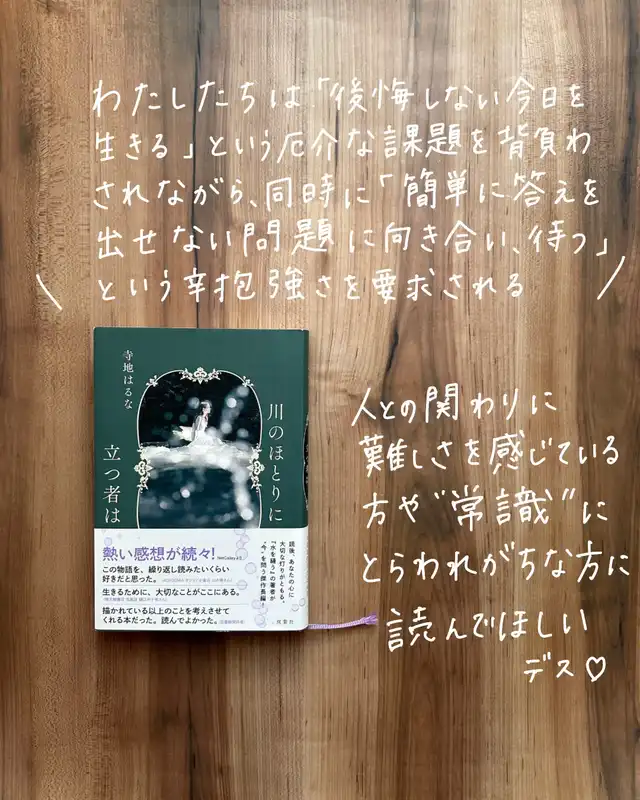 わたしたちは「後悔しない今日を
生きる」という厄介な課題を背負わ
されながら、同時に「簡単に答えを
出せない問題に向き合い、待つ」
という辛抱強さを要求される
寺地はるな
川のほとりに
立つ者は
熱い感想が続々!
この物語を、繰り返し読みたいくらい
好きだと思った。
生きるために、大切なことがここにある。
描かれている以上のことを考えさせて
くれる本だった。読んでよかった。
読後、あなたの心に
大切な灯りがともる。
『水を縫う』の著者が
“今”を問う傑作長編!
双葉社
人との関わりに
難しさを感じている
方や“常識”に
とらわれがちな方に
読んでほしい
デス♡